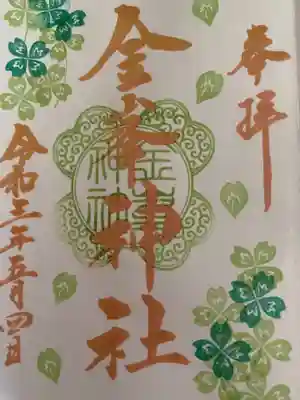 奉拝
金峯神社
金峯
神社
令和三年五月四日